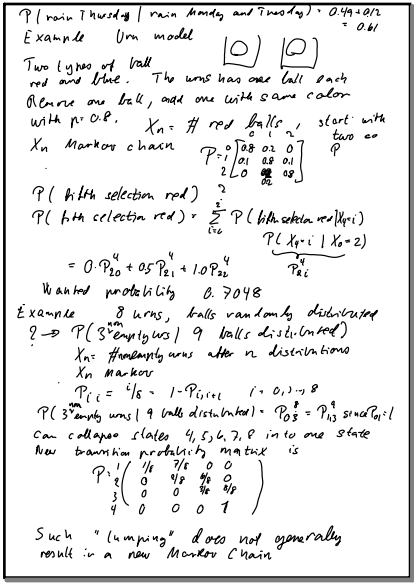 P(rain Thursday | rain Monday and Tuesday) = 0.49 + 0.12
= 0.61
Example Urn model
Two types of ball
red and blue. The urns has one ball each
Remove one ball, add one with same color
with p = 0.8. Xn = # red balls, start with
two
Xn Markov chain
0 1 2
P = 0 0.8 0.2 0
1 0.1 0.8 0.1
2 0 0.2 0.8
P
P( fifth selection red) ?
P( fifth selection red) = Σ P(fifth selection red | X4=i)
P( X4=i | X0=2)
P⁴2i
= 0·P⁴20 + 0.5 P⁴21 + 1.0 P⁴22
Wanted probability 0.7048
Example 8 urns, balls randomly distributed
? → P(3 nonempty urns | 9 balls distributed)
Xn = # nonempty urns after n distributions
Xn Markov
Pii = i/8 = 1 - Pi,i+1 i = 0,1,…,8
P(3 nonempty urns | 9 balls distributed) = P⁹03 = P⁸13 since P01=1
Can collapse states 4,5,6,7,8 in to one state
New transition probability matrix is
P = 1 1/8 7/8 0 0
2 0 2/8 6/8 0
3 0 0 3/8 5/8
4 0 0 0 1
Such "lumping" does not generally
result in a new Markov Chain